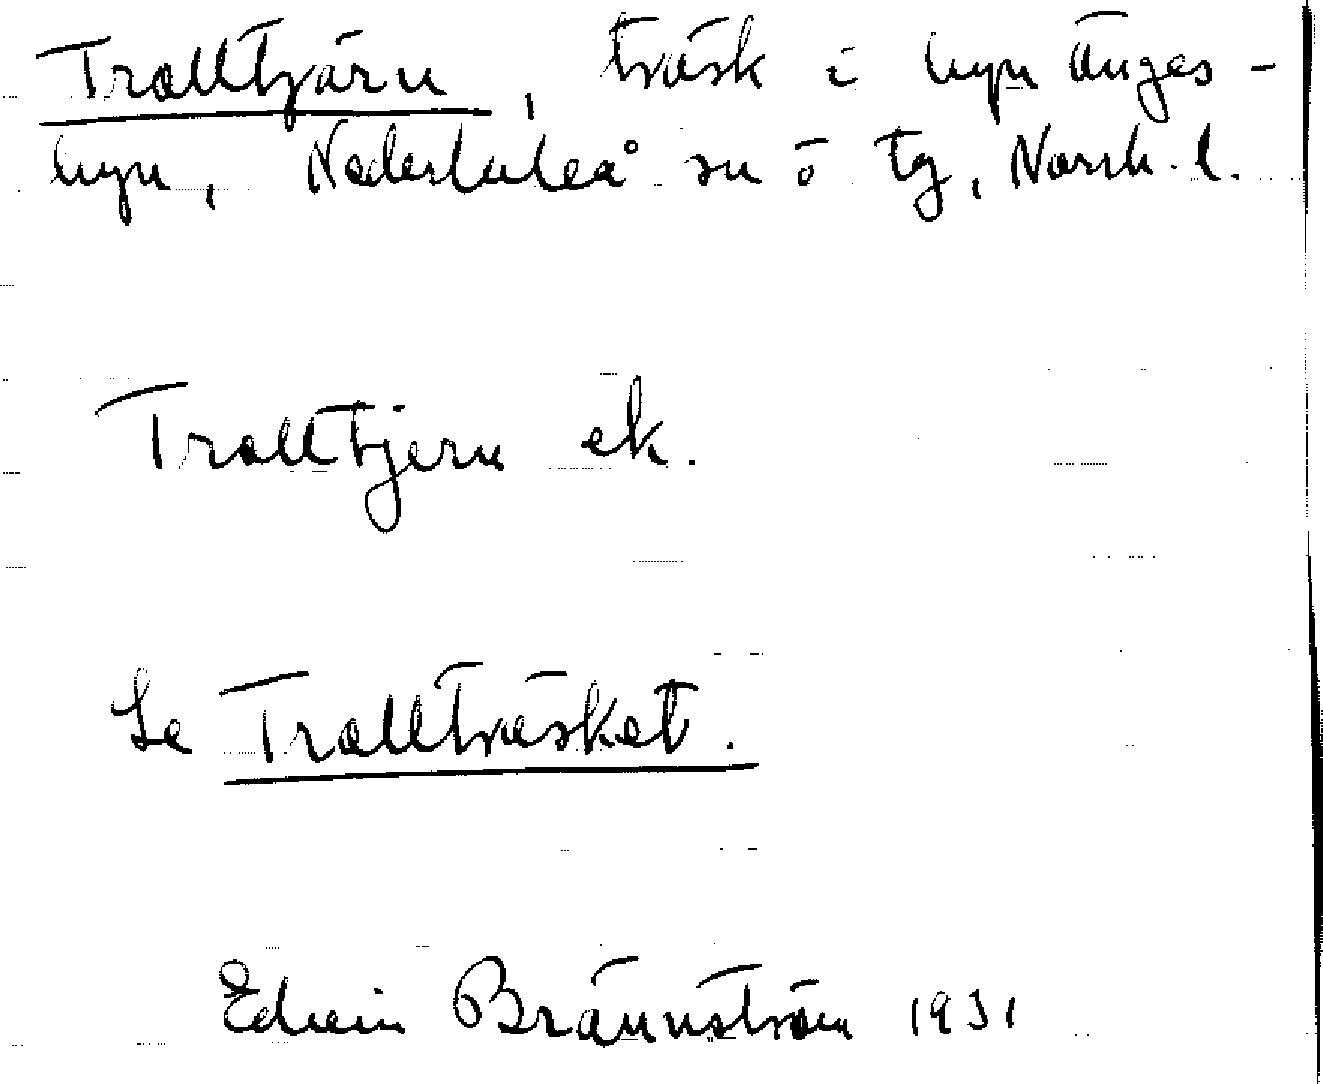 Trolltjärn, träsk i byn Änges-
byn, Nederluleå sn o tg, Norrb. l.
Trolltjern ek.
Se Trollträsket.
Edvin Brännström 1931